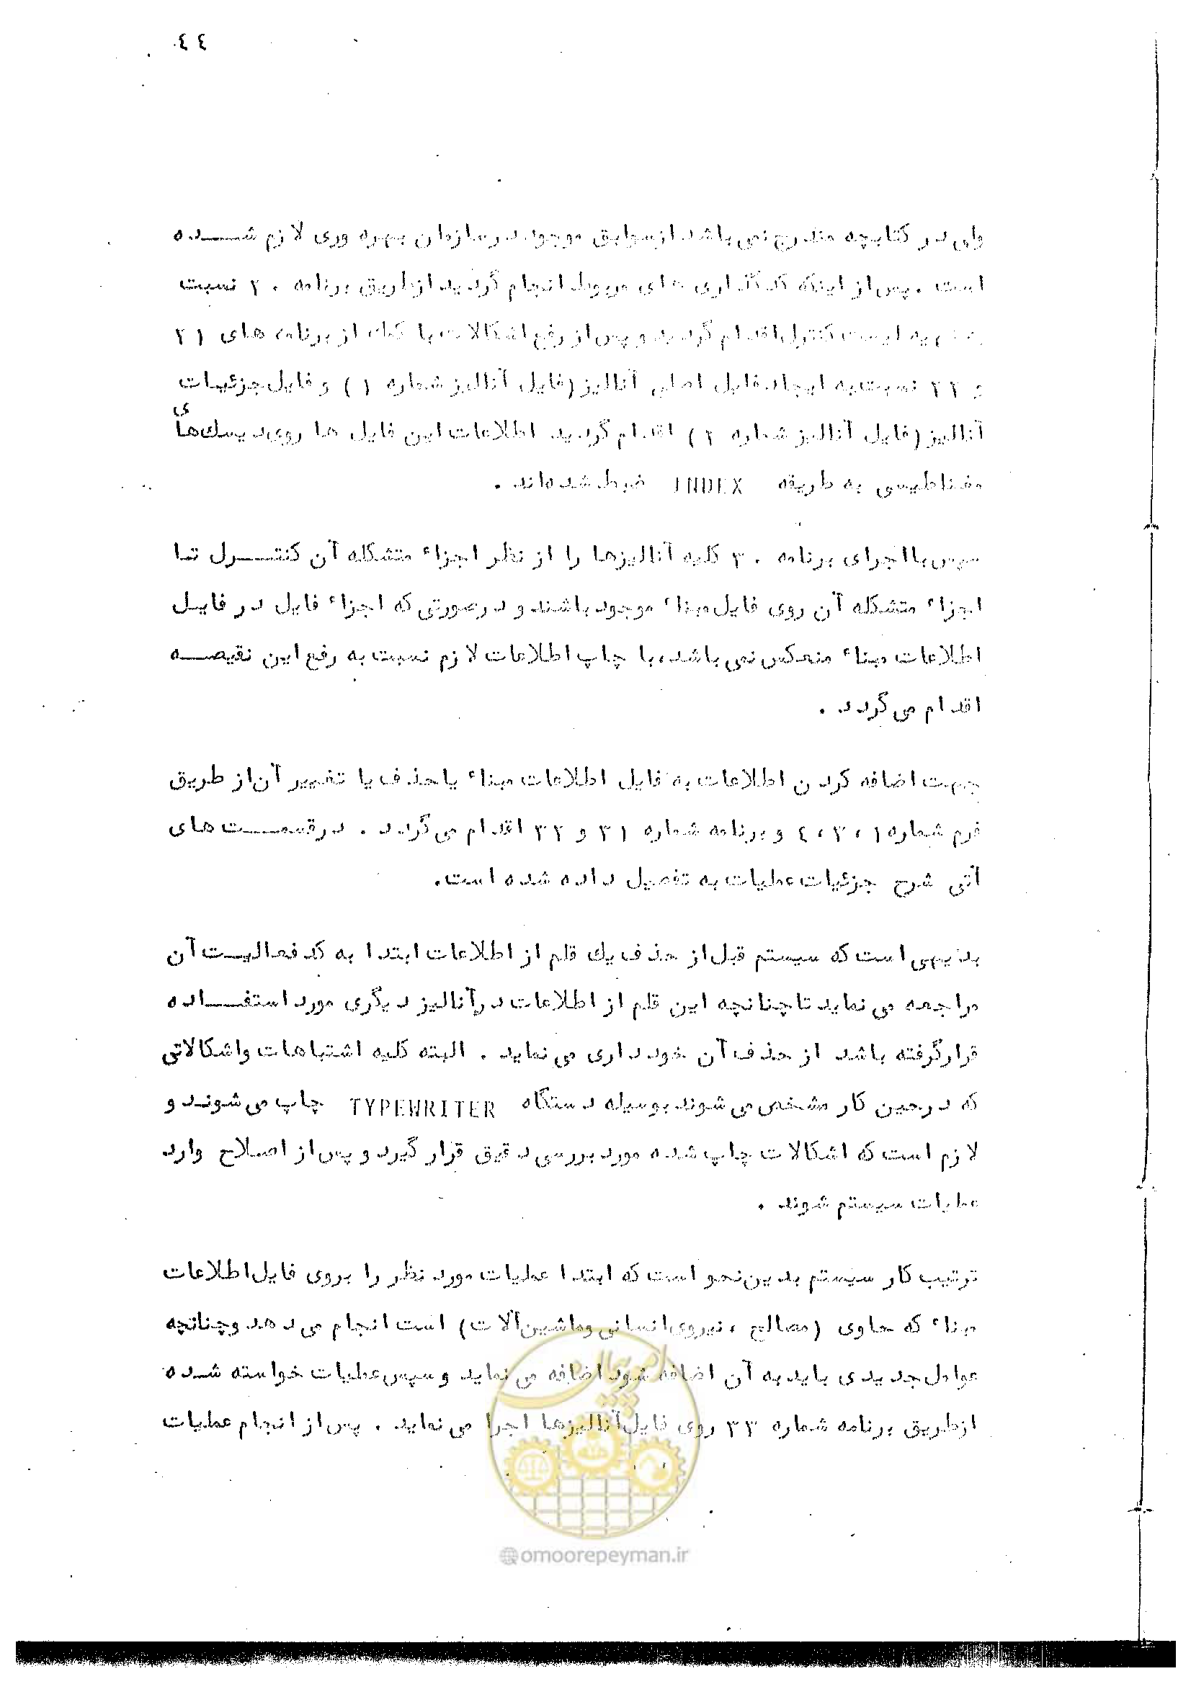 ٤٤
ولی در کتابچه مندرج نمی باشد ازسوابق موجود درسازمان بهره وری لازم شـــده
است . پس از اینکه کدگذاری های مربوط انجام گردید ازطریق برنامه ۲۰ نسبت
به لیست کنترل اقدام گردید و پس از رفع اشکالات با کمک از برنامه های ۲۱
و ۲۲ نسبت به ایجاد فایل اصلی آنالیز (فایل آنالیز شماره ۱) و فایل جزئیات
آنالیز (فایل آنالیز شماره ۲) اقدام گردید. اطلاعات این فایل ها روی دیسک های
مغناطیسی به طریقه INDEX ضبط شده‌اند .
سپس با اجرای برنامه ۳۰ کلیه آنالیزها را از نظر اجزاء متشکله آن کنتـــرل تا
اجزاء متشکله آن روی فایل مبناء موجود باشند و درصورتی که اجزاء فایل در فایل
اطلاعات مبناء منعکس نمی باشد، با چاپ اطلاعات لازم نسبت به رفع این نقیصـــه
اقدام می گردد .
جهت اضافه کردن اطلاعات به فایل اطلاعات مبناء یا حذف یا تغییر آن از طریق
فرم شماره ۱ ، ۳ ، ٤ و برنامه شماره ۳۱ و ۳۲ اقدام می گردد . درقسمـــت های
آتی شرح جزئیات عملیات به تفصیل داده شده است.
بدیهی است که سیستم قبل از حذف یک قلم از اطلاعات ابتدا به کد فعالیت آن
مراجعه می نماید تا چنانچه این قلم از اطلاعات در آنالیز دیگری مورد استفـــاده
قرار گرفته باشد از حذف آن خودداری می نماید . البته کلیه اشتباهات و اشکالاتی
که درحین کار مشخص می شوند بوسیله دستگاه TYPEWRITER چاپ می شوند و
لازم است که اشکالات چاپ شده مورد بررسی دقیق قرار گیرد و پس از اصلاح وارد
عملیات سیستم شوند .
ترتیب کار سیستم بدین نحو است که ابتدا عملیات مورد نظر را بروی فایل اطلاعات
مبناء که حاوی (مصالح ، نیروی انسانی و ماشین آلات) است انجام می دهد و چنانچه
عوامل جدیدی باید به آن اضافه شود اضافه می نماید و سپس عملیات خواسته شـــده
ازطریق برنامه شماره ۳۳ روی فایل آنالیزها اجرا می نماید . پس از انجام عملیات
امور پیمان
@omoorepeyman.ir